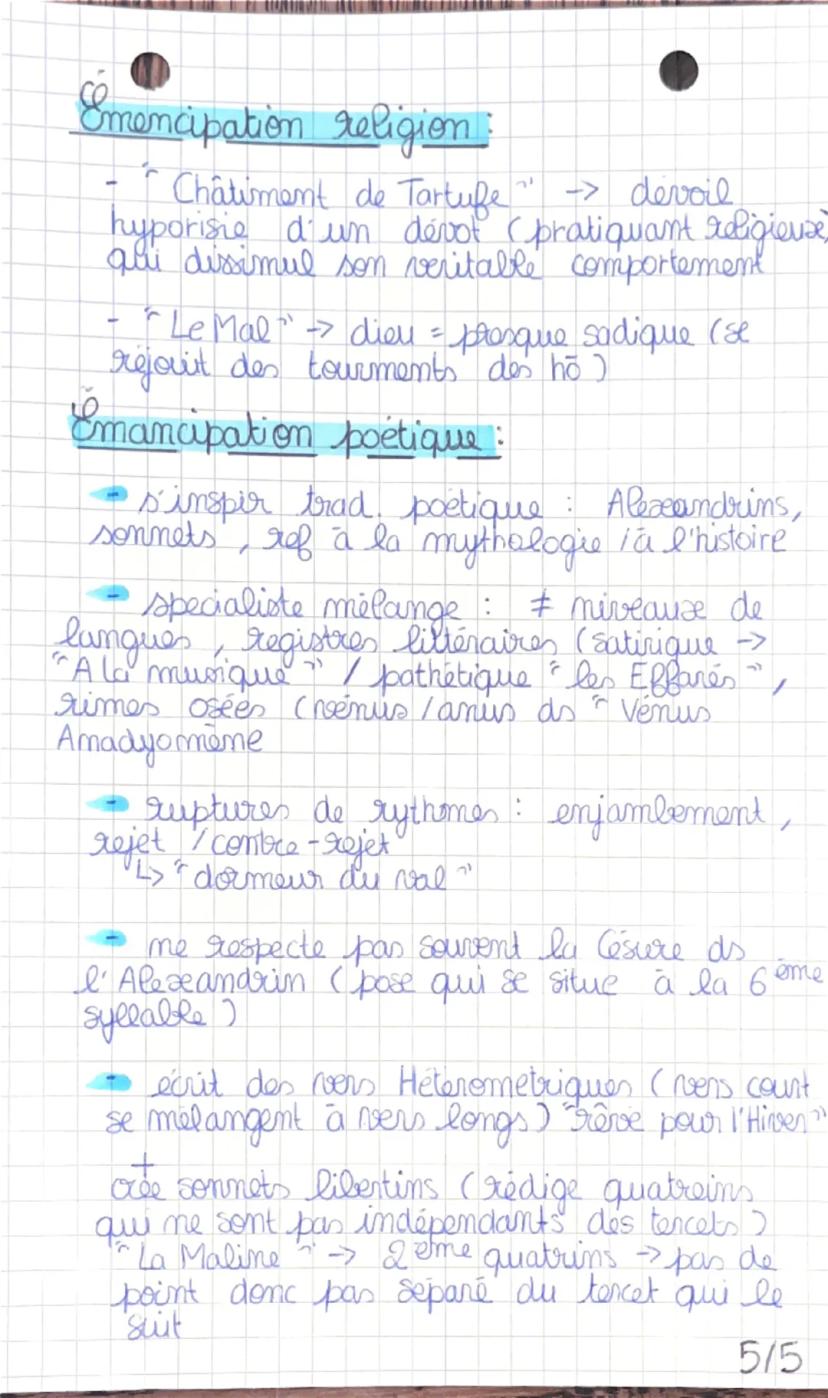 Émencipation religion :
- "Châtiment de Tartufe" -> dévoil
hyporisie d'un dévot (pratiquant religieuse)
qui dissimul son veritable comportement
- "Le Mal" -> dieu = presque sadique (se
réjouit des tourments des hō)
Émancipation poétique :
- s'inspir trad. poétique : Alexandrins,
sonnets, ref à la mythologie /à l'histoire
- specialiste mélange : ≠ niveaux de
langues, registres littéraires (satirique ->
"A la musique" / pathétique "les Effarés",
rimes osées (vénus/anus ds "Vénus
Amadyomène
- ruptures de rythmes : enjambement,
rejet / contre-rejet
↳ "dormeur du val"
- ne respecte pas souvent la Césure ds
l'Alexandrin (pose qui se situe à la 6ème
syllable)
- écrit des vers Hétérometriques (vers court
se mélangent à vers longs) "rêve pour l'Hiver"
+
crée sonnets libentins (rédige quatreins
qui ne sont pas indépendants des tercets)
"La Maline" -> 2ème quatrins -> pas de
point donc pas séparé du tercet qui le
suit
5/5